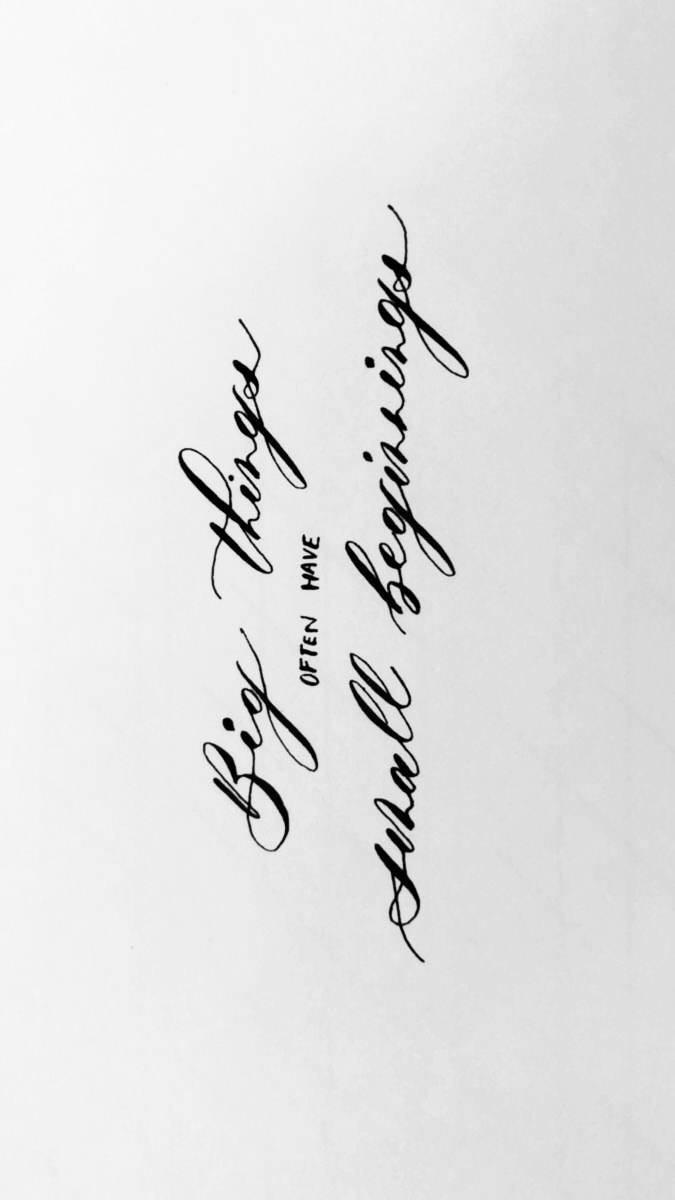 Big things
OFTEN HAVE
small beginnings